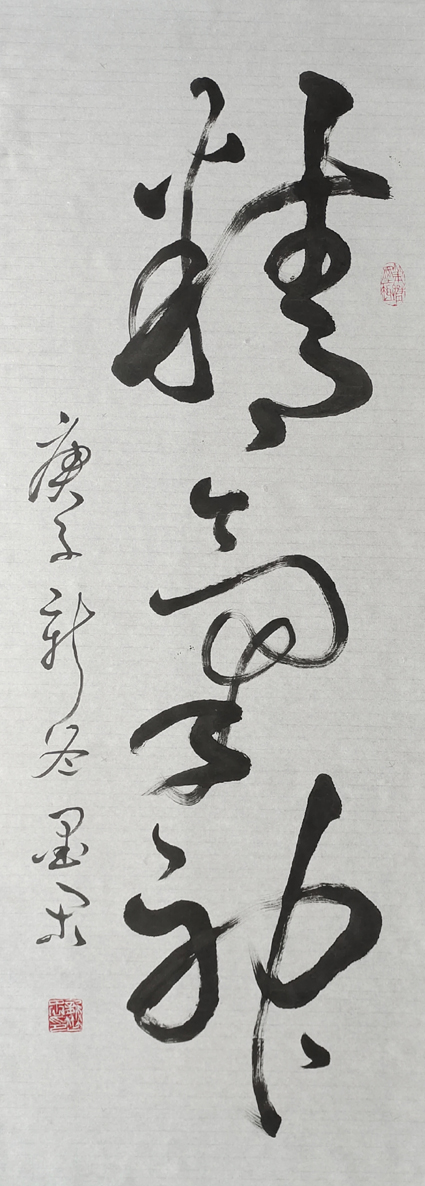 精氣神
庚子新冬墨宋